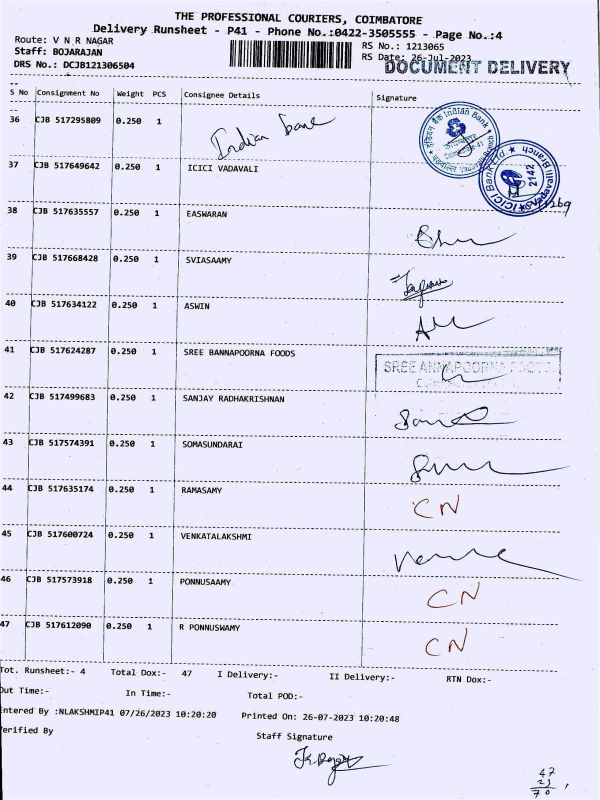 THE PROFESSIONAL COURIERS, COIMBATORE
Delivery Runsheet - P41 - Phone No.:0422-3505555 - Page No.:4
Route: V N R NAGAR
RS No.: 1213065
Staff: BOJARAJAN
RS Date: 26-Jul-2023
DRS No.: DCJB121306504
DOCUMENT DELIVERY
S No Consignment No Weight PCS Consignee Details Signature
36 CJB 517295809 0.250 1 Indian bank
37 CJB 517649642 0.250 1 ICICI VADAVALI
38 CJB 517635557 0.250 1 EASWARAN
39 CJB 517668428 0.250 1 SVIASAAMY
40 CJB 517634122 0.250 1 ASWIN
41 CJB 517624287 0.250 1 SREE BANNAPOORNA FOODS SREE ANNAPOORNA
42 CJB 517499683 0.250 1 SANJAY RADHAKRISHNAN
43 CJB 517574391 0.250 1 SOMASUNDARAI
44 CJB 517635174 0.250 1 RAMASAMY CN
45 CJB 517600724 0.250 1 VENKATALAKSHMI
46 CJB 517573918 0.250 1 PONNUSAAMY CN
47 CJB 517612090 0.250 1 R PONNUSWAMY CN
Tot. Runsheet:- 4 Total Dox:- 47 I Delivery:- II Delivery:- RTN Dox:-
Out Time:- In Time:- Total POD:-
Entered By :NLAKSHMIP41 07/26/2023 10:20:20 Printed On: 26-07-2023 10:20:48
Verified By
Staff Signature
47
23
70